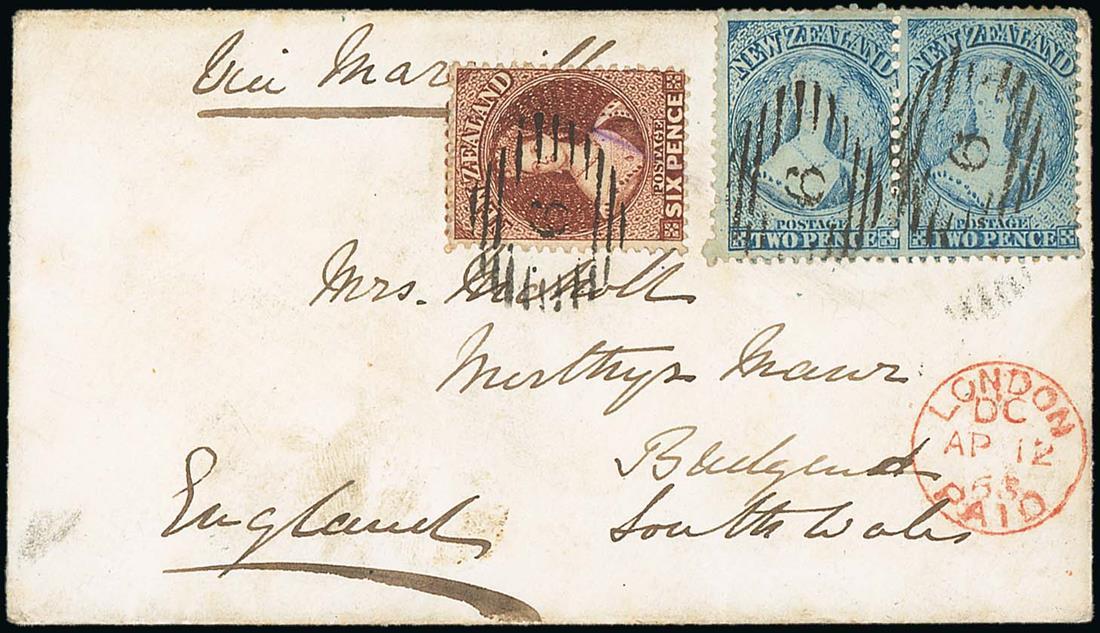 Via
NEW ZEALAND
POSTAGE
TWO PENCE
6
NEW ZEALAND
POSTAGE
TWO PENCE
6
ZEALAND
POSTAGE
SIX PENCE
6
Mrs.
Merthyr Mawr
Bridgend
South Wales
England
LONDON
DC
AP 12
PAID